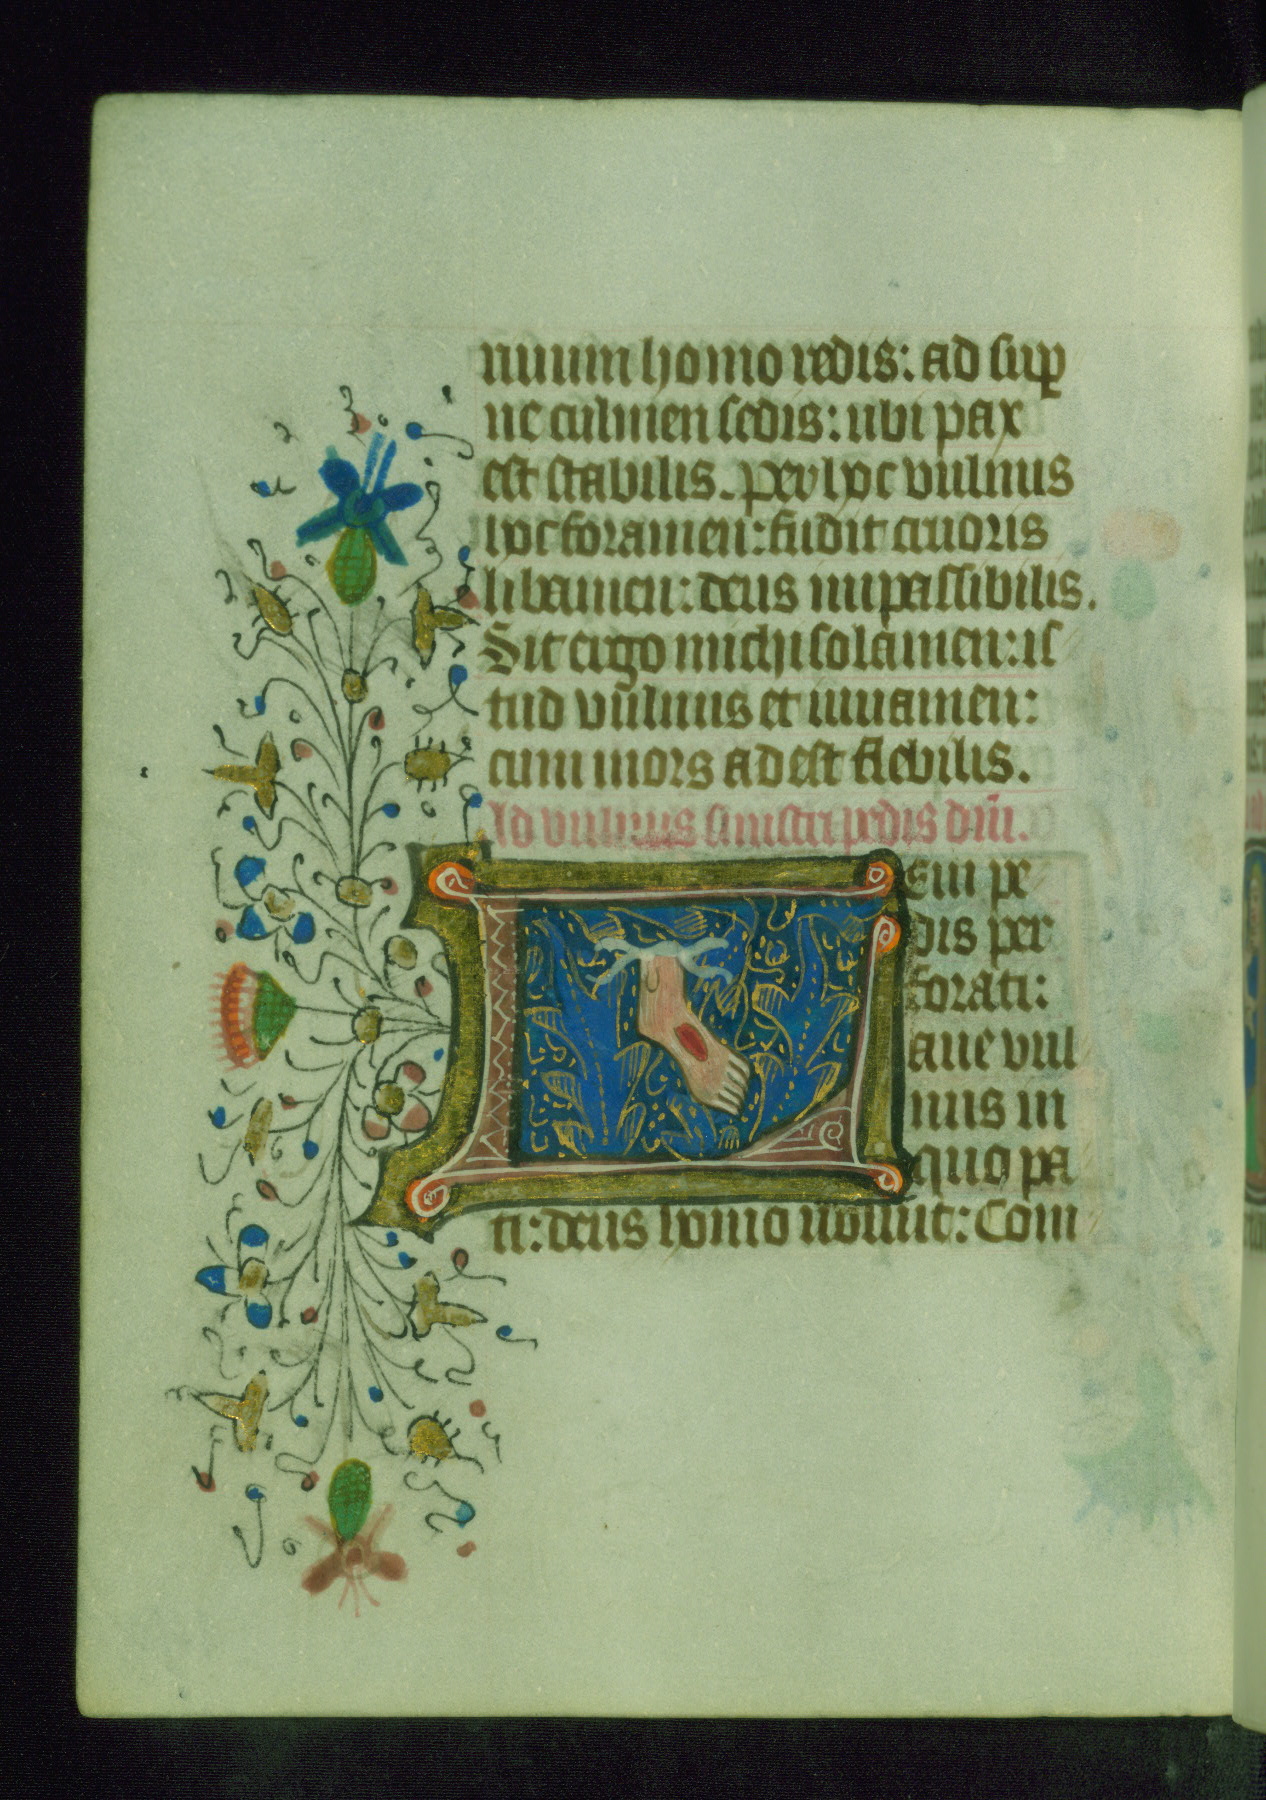 nuum homo redis: ad sup
ne culmen sedis: ubi pax
est stabilis. Per hoc vulnus
hoc foramen: fudit cruoris
libamen: deus inpassibilis.
Sit ergo michi solamen: is
tud vulnus et iuuamen:
cum mors adest flebilis.
Ad vulnus sinistri pedis dni.
Leui pe
dis per
forati:
aue vul
nus in
quo pa
ti: deus homo uoluit: Com